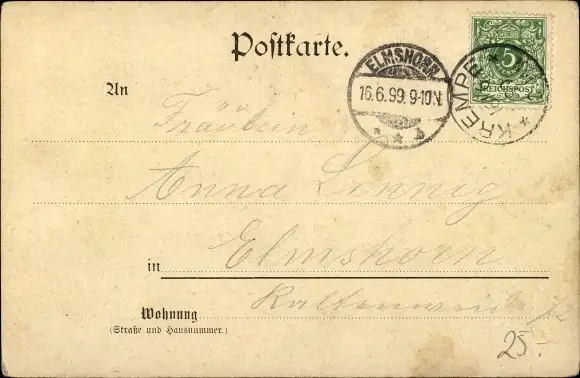 Postkarte.
5
REICHSPOST
ELMSHORN
16.6.99. 9-10N.
KREMPE
An
Fräulein
Anna Linnig
in Elmshorn
Wohnung
(Straße und Hausnummer.)
25-